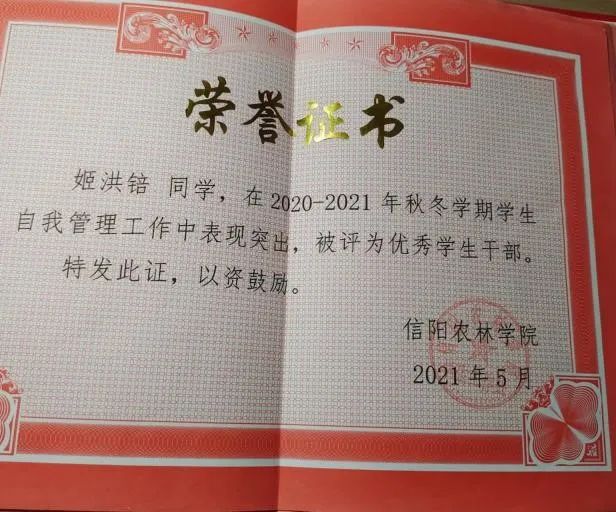 荣誉证书
姬洪锫 同学，在2020-2021年秋冬学期学生
自我管理工作中表现突出，被评为优秀学生干部。
特发此证，以资鼓励。
信阳农林学院
2021年5月